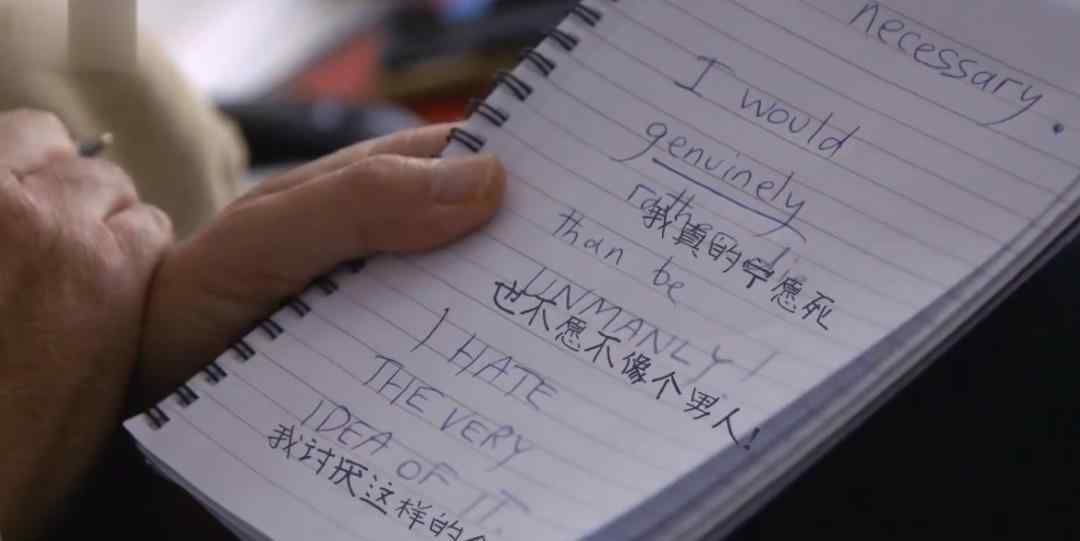 necessary.
I would
genuinely
我真的宁愿死
than be
UNMANLY!
也不愿不像个男人!
I HATE
THE VERY
IDEA OF IT.
我讨厌这样的